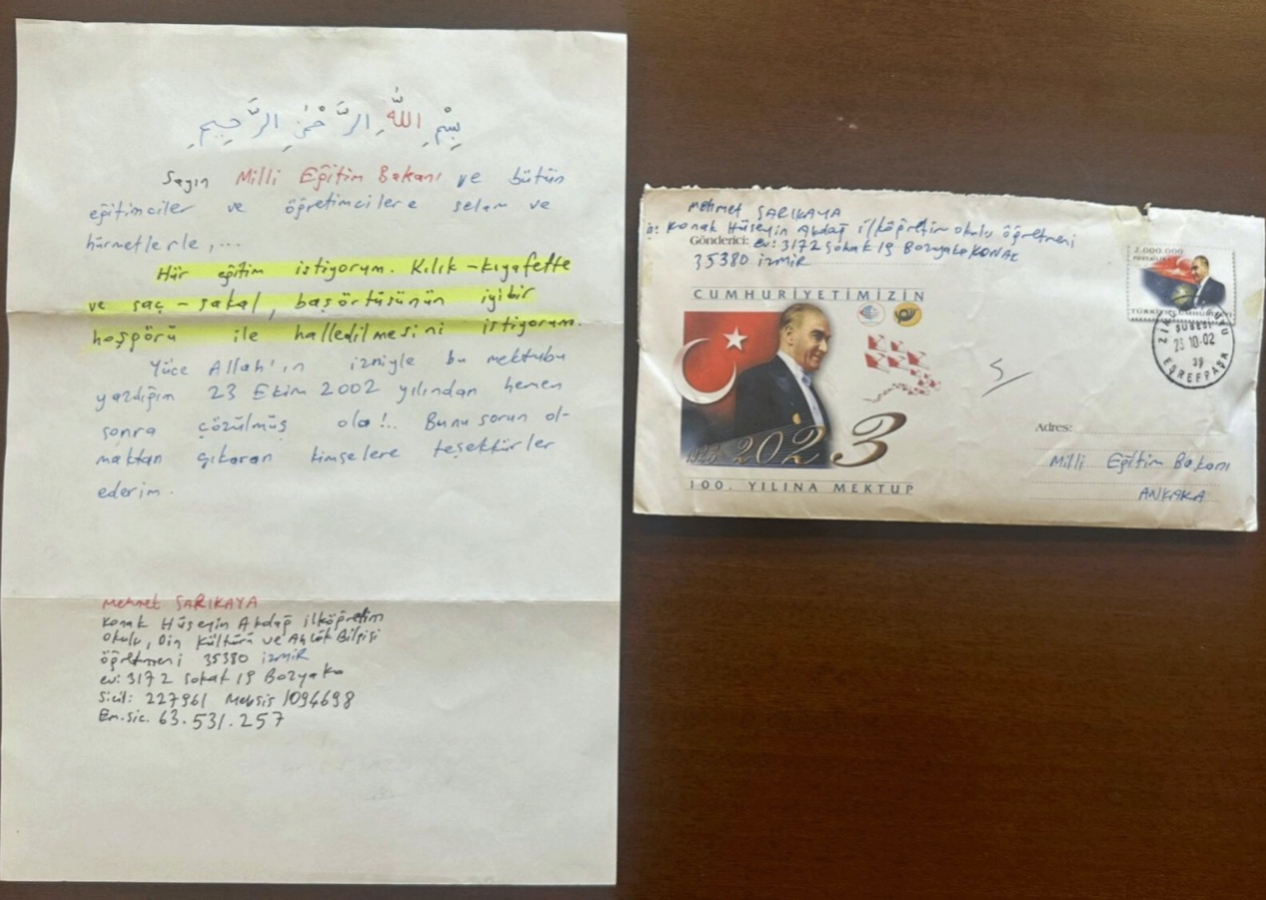 بِسْمِ اللّٰهِ الرَّحْمٰنِ الرَّحِيمِ
Sayın Milli Eğitim Bakanı ve bütün
eğitimciler ve öğretimcilere selam ve
hürmetlerle,...
Hür eğitim istiyorum. Kılık-kıyafette
ve saç-sakal, başörtüsünün iyi bir
hoşgörü ile halledilmesini istiyorum.
Yüce Allah'ın izniyle bu mektubu
yazdığım 23 Ekim 2002 yılından hemen
sonra çözülmüş ola!.. Bunu sorun ol-
maktan çıkaran kimselere teşekkürler
ederim.
Mehmet SARIKAYA
Konak Hüseyin Akdağ ilköğretim
okulu, Din Kültürü ve Ahlâk Bilgisi
öğretmeni 35380 izmir
ev: 3172 sokak 19 Bozyaka
Sicil: 227961 Mebsis 1094698
Em.sic. 63.531.257
Mehmet SARIKAYA
Konak Hüseyin Akdağ ilköğretim okulu öğretmeni
Gönderici: ev: 3172 Sokak 19 Bozyaka KONAK
35380 izmir
CUMHURİYETİMİZİN
2023
100. YILINA MEKTUP
2.000.000
TÜRKİYE CUMHURİYETİ
ŞUBESİ
23 10 02
39
EŞREFPAŞA
Adres:
Milli Eğitim Bakanı
ANKARA